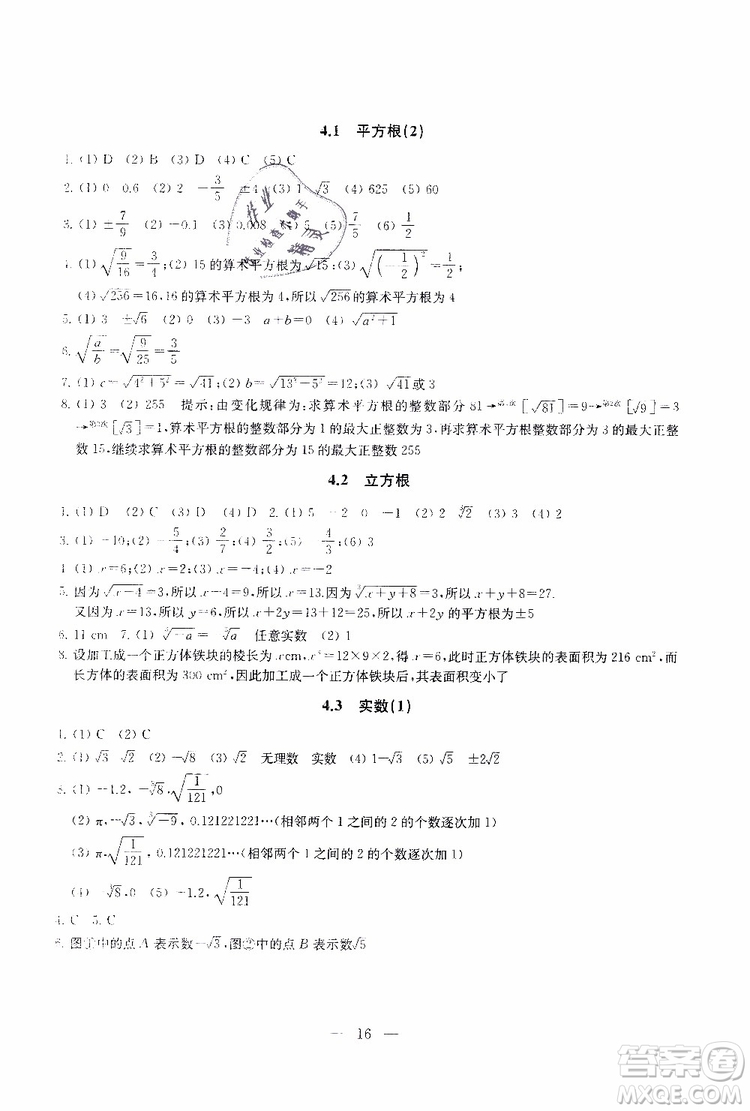 4.1 平方根(2)
1. (1) D (2) B (3) D (4) C (5) C
2. (1) 0 0.6 (2) 2 −3/5 ±4 (3) 1−√3 (4) 625 (5) 60
3. (1) ±7/9 (2) −0.1 (3) 0.008 (4) 5 (5)
(1) √(9/16)=3/4; (2) 15 的算术平方根为√15; (3) √((−1/2)²)=1/2;
(4) √256=16,16 的算术平方根为 4,所以√256的算术平方根为 4
5. (1) 3 ±√6 (2) 0 (3) −3 a+b=0 (4) √(a²+1)
6. √(a/b)=√(9/25)=3/5
7. (1) c=√(4²+5²)=√41; (2) b=√(13²−5²)=12; (3) √41或3
8. (1) 3 (2) 255 提示:由变化规律为:求算术平方根的整数部分 81→第1次[√81]=9→第2次[√9]=3
→第3次[√3]=1,算术平方根的整数部分为 1 的最大正整数为 3,再求算术平方根整数部分为 3 的最大正整数
15,继续求算术平方根整数部分为 15 的最大正整数 255
4.2 立方根
1. (1) D (2) C (3) D (4) D 2. (1) 5 −2 0 −1 (2) ∛2 (3) 3 (4) 2
3. (1) −10; (2) −5/4; (3) 7/2; (4) −3/2; (5) −4/3; (6) 3
(1) x=6; (2) x=3; (3) x=1; (4) x=−2
5. 因为√(x−4)=3,所以 x−4=9,所以 x=13,因为∛(x+y+8)=3,所以 x+y+8=27.
又因为 x=13,所以 y=6,所以 x+2y=13+12=25,所以 x+2y 的平方根为±5
6. 11 cm 7. (1) ∛(−a)=−∛a 任意实数 (2) 1
8. 设加工成一个正方体铁块的棱长为 x cm, x³=12×9×2,得 x=6,此时正方体铁块的表面积为 216 cm²,而
长方体的表面积为 300 cm²,因此加工成一个正方体铁块后,其表面积变小了
4.3 实数(1)
1. (1) C (2) C
2. (1) √3 √2 (2) −√8 (3) 无理数 实数 (4) 1−√2 √2−1 ±2√2
3. (1) −1.2,−∛8,√(1/121),0
(2) π,−√3,∛−9,0.121221222⋯(相邻两个 1 之间的 2 的个数逐次加 1)
(3) π,√(1/121),0.121221222⋯(相邻两个 1 之间的 2 的个数逐次加 1)
(4) −∛8,0 (5) −1.2,√(1/121)
4. C 5. C
6. 图①中的点 A 表示数−√3,图②中的点 B 表示数√5
— 16 —
作业
作业检查小助手
精灵
答案圈
MXQE.COM